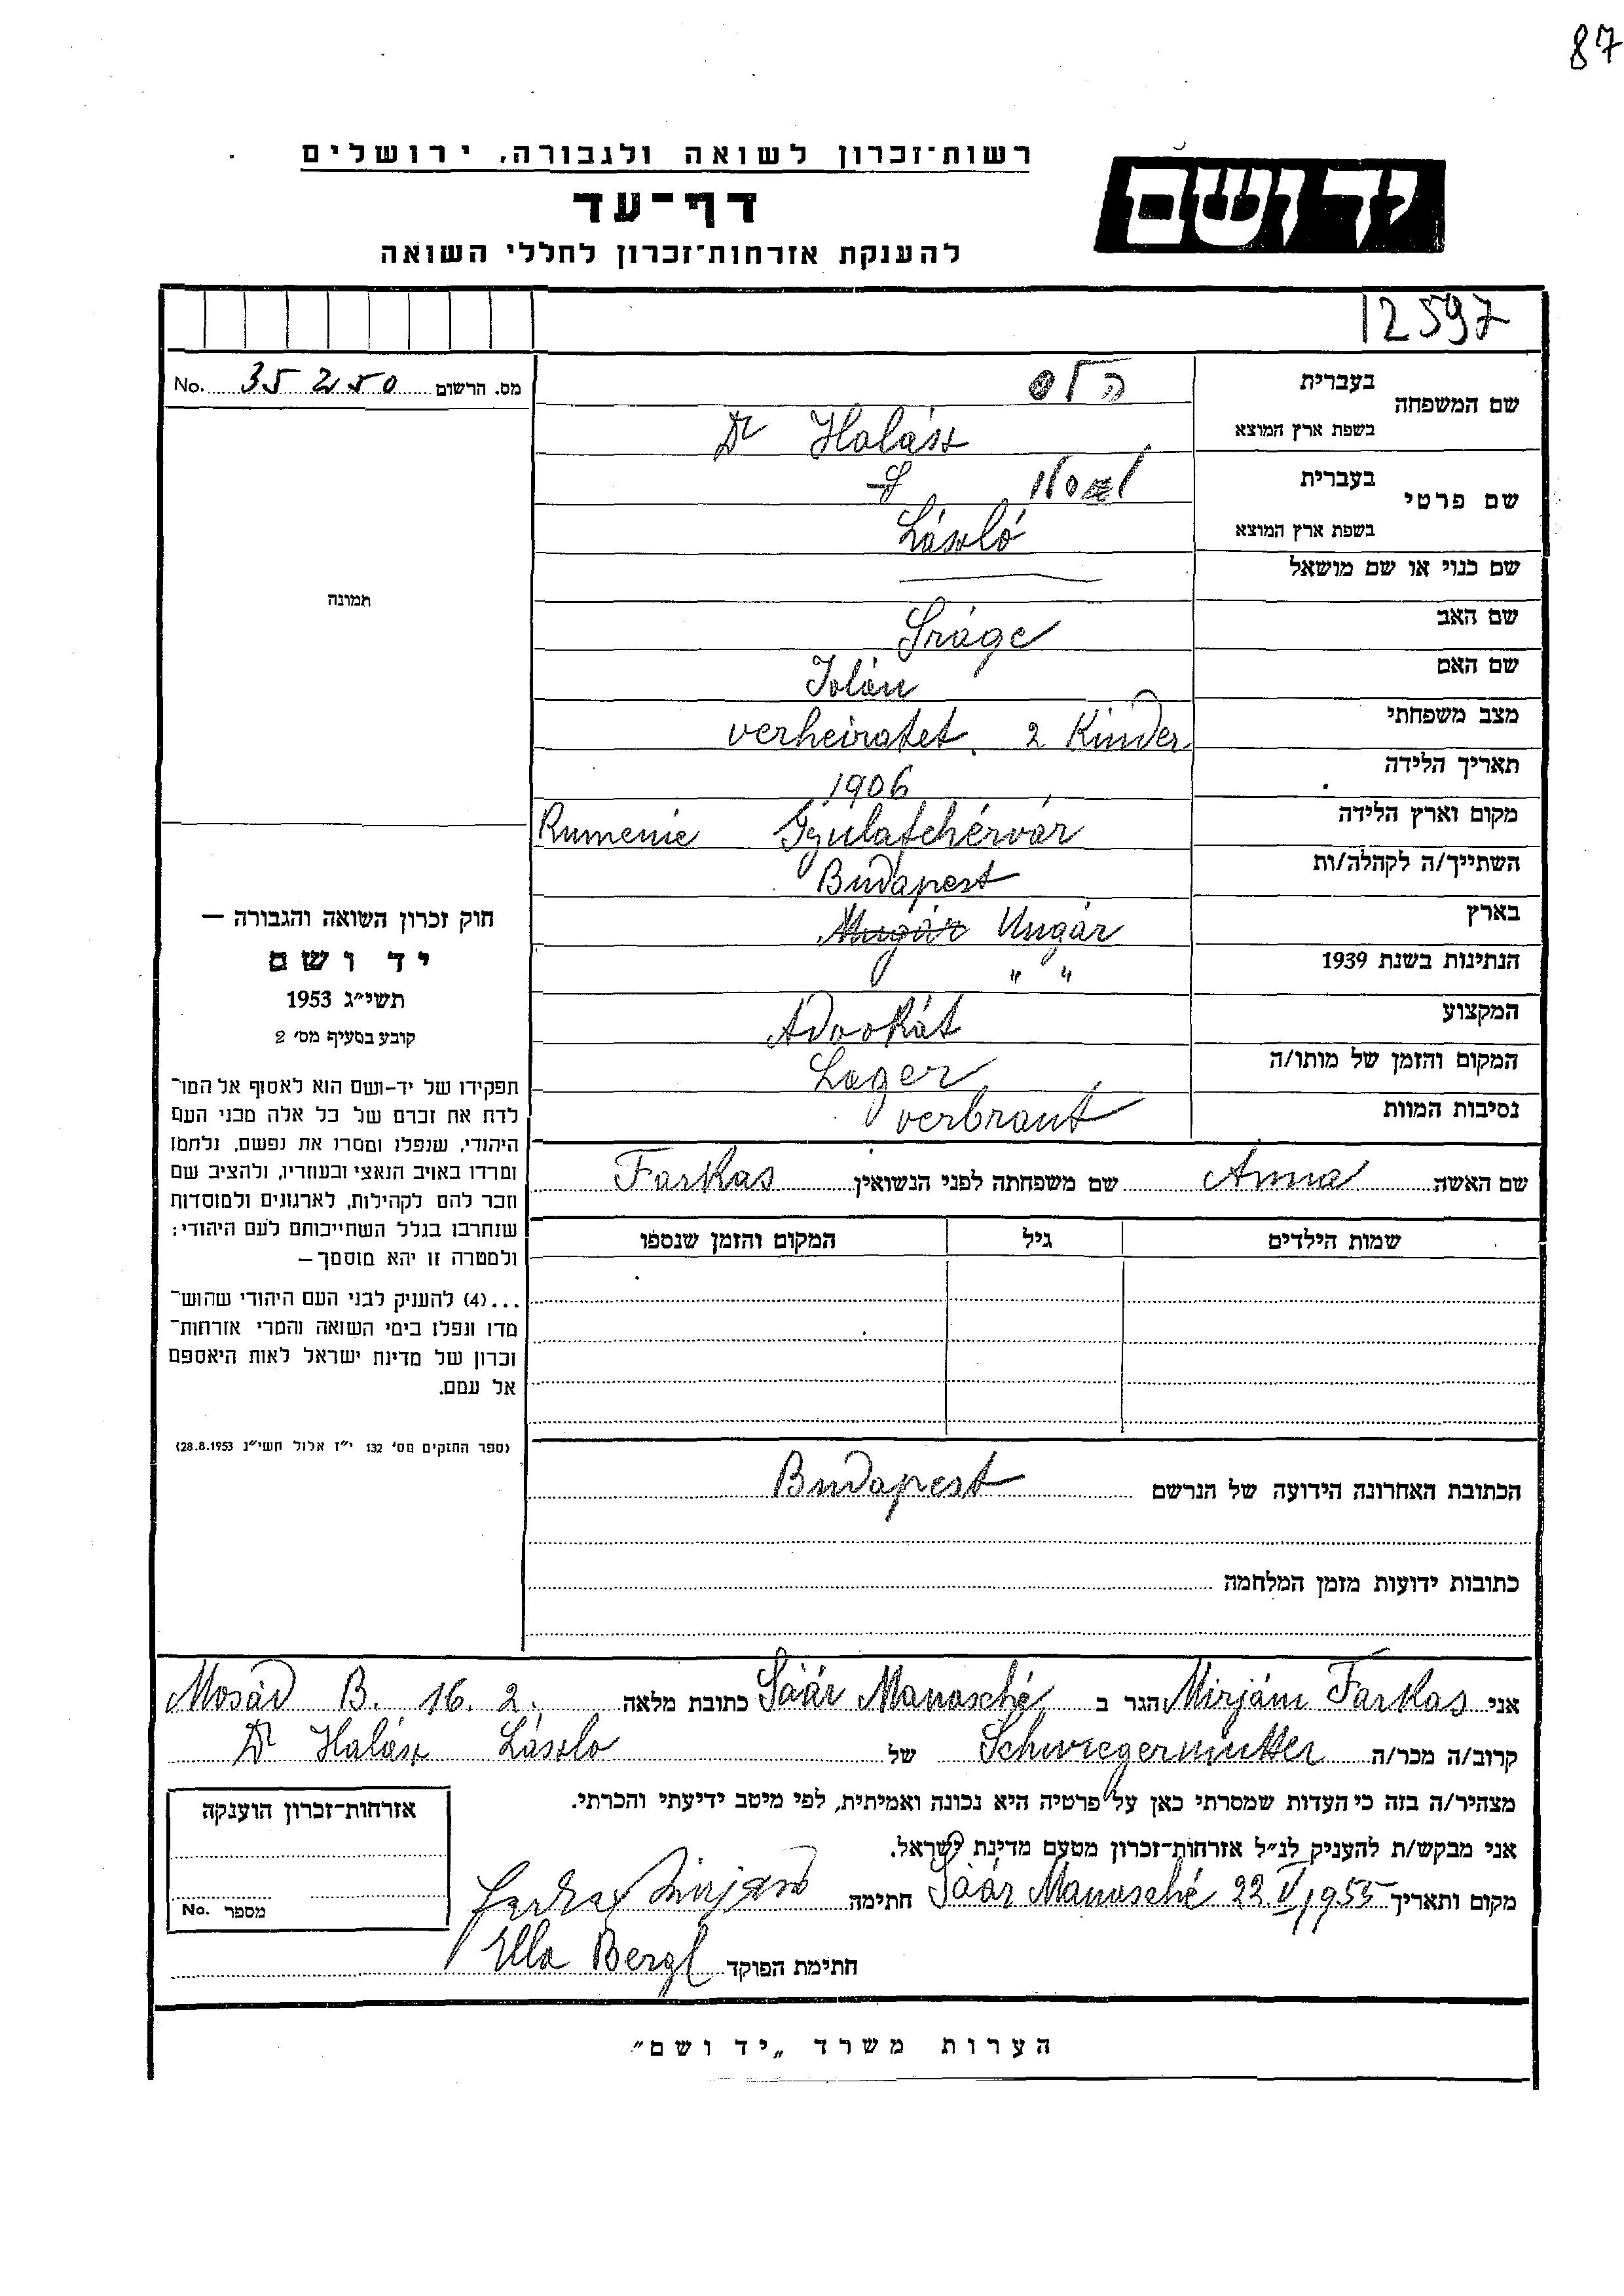 87
רשות־זכרון לשואה ולגבורה, ירושלים
יד ושם
דף־עד
להענקת אזרחות־זכרון לחללי השואה
12597
מס. הרשום 35250 No.
שם המשפחה
בעברית הלס
בשפת ארץ המוצא Dr Halász
שם פרטי
בעברית
בשפת ארץ המוצא László
שם כנוי או שם מושאל —
תמונה
שם האב Sráge
שם האם Jolán
מצב משפחתי verheiratet. 2 Kinder
תאריך הלידה 1906
מקום וארץ הלידה Gyulafehérvár Rumenie
השתייך/ה לקהלה/ות Budapest
בארץ Ungár
הנתינות בשנת 1939 " "
המקצוע Advokát
המקום והזמן של מותו/ה Lager
נסיבות המוות verbrant
חוק זכרון השואה והגבורה —
יד ושם
תשי"ג 1953
קובע בסעיף מס' 2
תפקידו של יד-ושם הוא לאסוף אל המו־
לדת את זכרם של כל אלה מבני העם
היהודי, שנפלו ומסרו את נפשם, נלחמו
ומרדו באויב הנאצי ובעוזריו, ולהציב שם
וזכר להם לקהילות, לארגונים ולמוסדות
שנחרבו בגלל השתייכותם לעם היהודי;
ולמטרה זו יהא מוסמך —
...(4) להעניק לבני העם היהודי שהוש־
מדו ונפלו בימי השואה והמרי אזרחות־
זכרון של מדינת ישראל לאות היאספם
אל עמם.
(ספר החוקים מס' 132 י"ז אלול תשי"ג 28.8.1953)
שם האשה Anna שם משפחתה לפני הנשואין Farkas
שמות הילדים גיל המקום והזמן שנספו
הכתובת האחרונה הידועה של הנרשם Budapest
כתובות ידועות מזמן המלחמה
אני Mirjám Farkas הגר ב Sáár Manasché כתובת מלאה Mosád B. 16. 2.
קרוב/ה מכר/ה Schwiegermutter של Dr Halász László
מצהיר/ה בזה כי העדות שמסרתי כאן על פרטיה היא נכונה ואמיתית, לפי מיטב ידיעתי והכרתי.
אני מבקש/ת להעניק לנ"ל אזרחות־זכרון מטעם מדינת ישראל.
מקום ותאריך Sáár Manasché 22.V.1955 חתימה Farkas Mirjam
חתימת הפוקד Ella Bergl
אזרחות־זכרון הוענקה
מספר No.
הערות משרד „יד ושם"